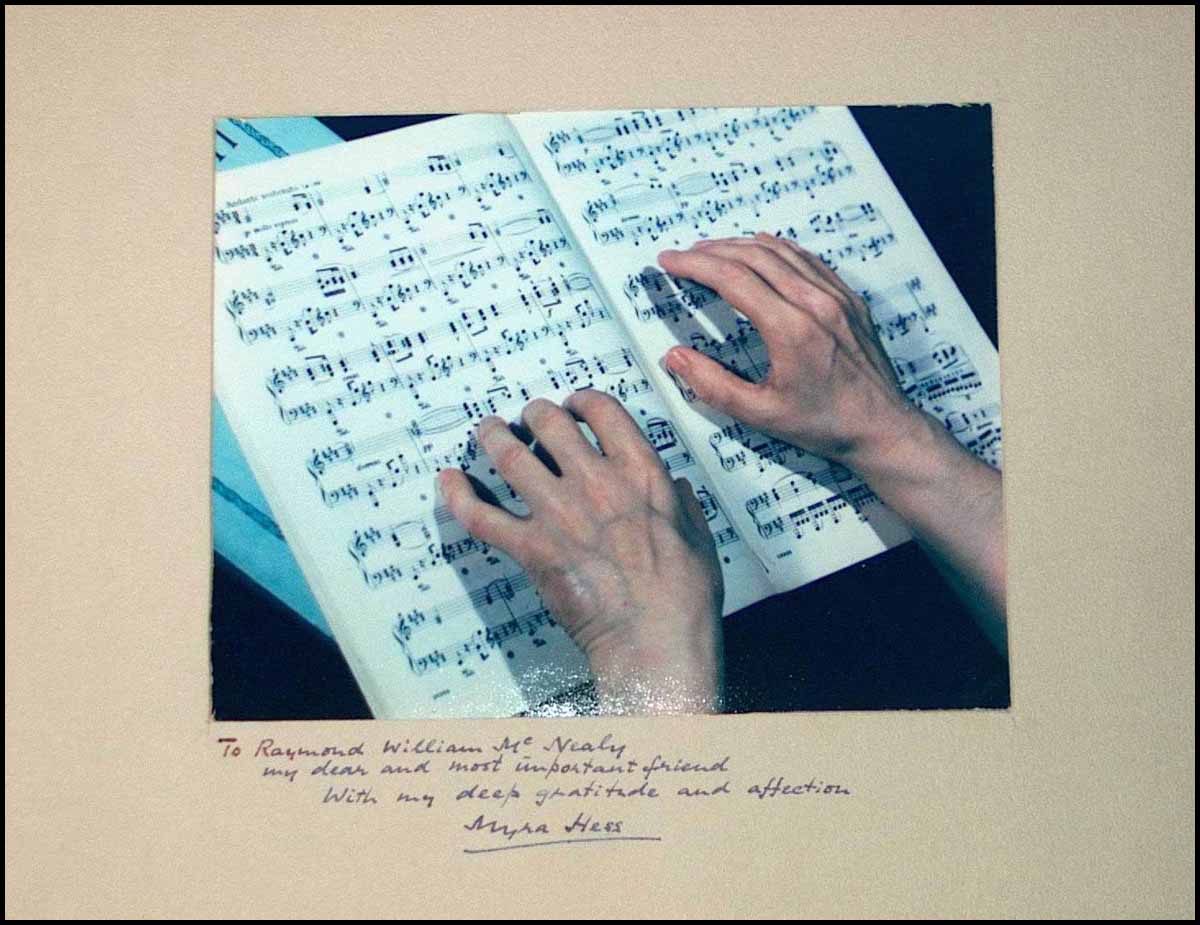 Andante sostenuto
To Raymond William Mc Nealy
my dear and most important friend
With my deep gratitude and affection
Myra Hess